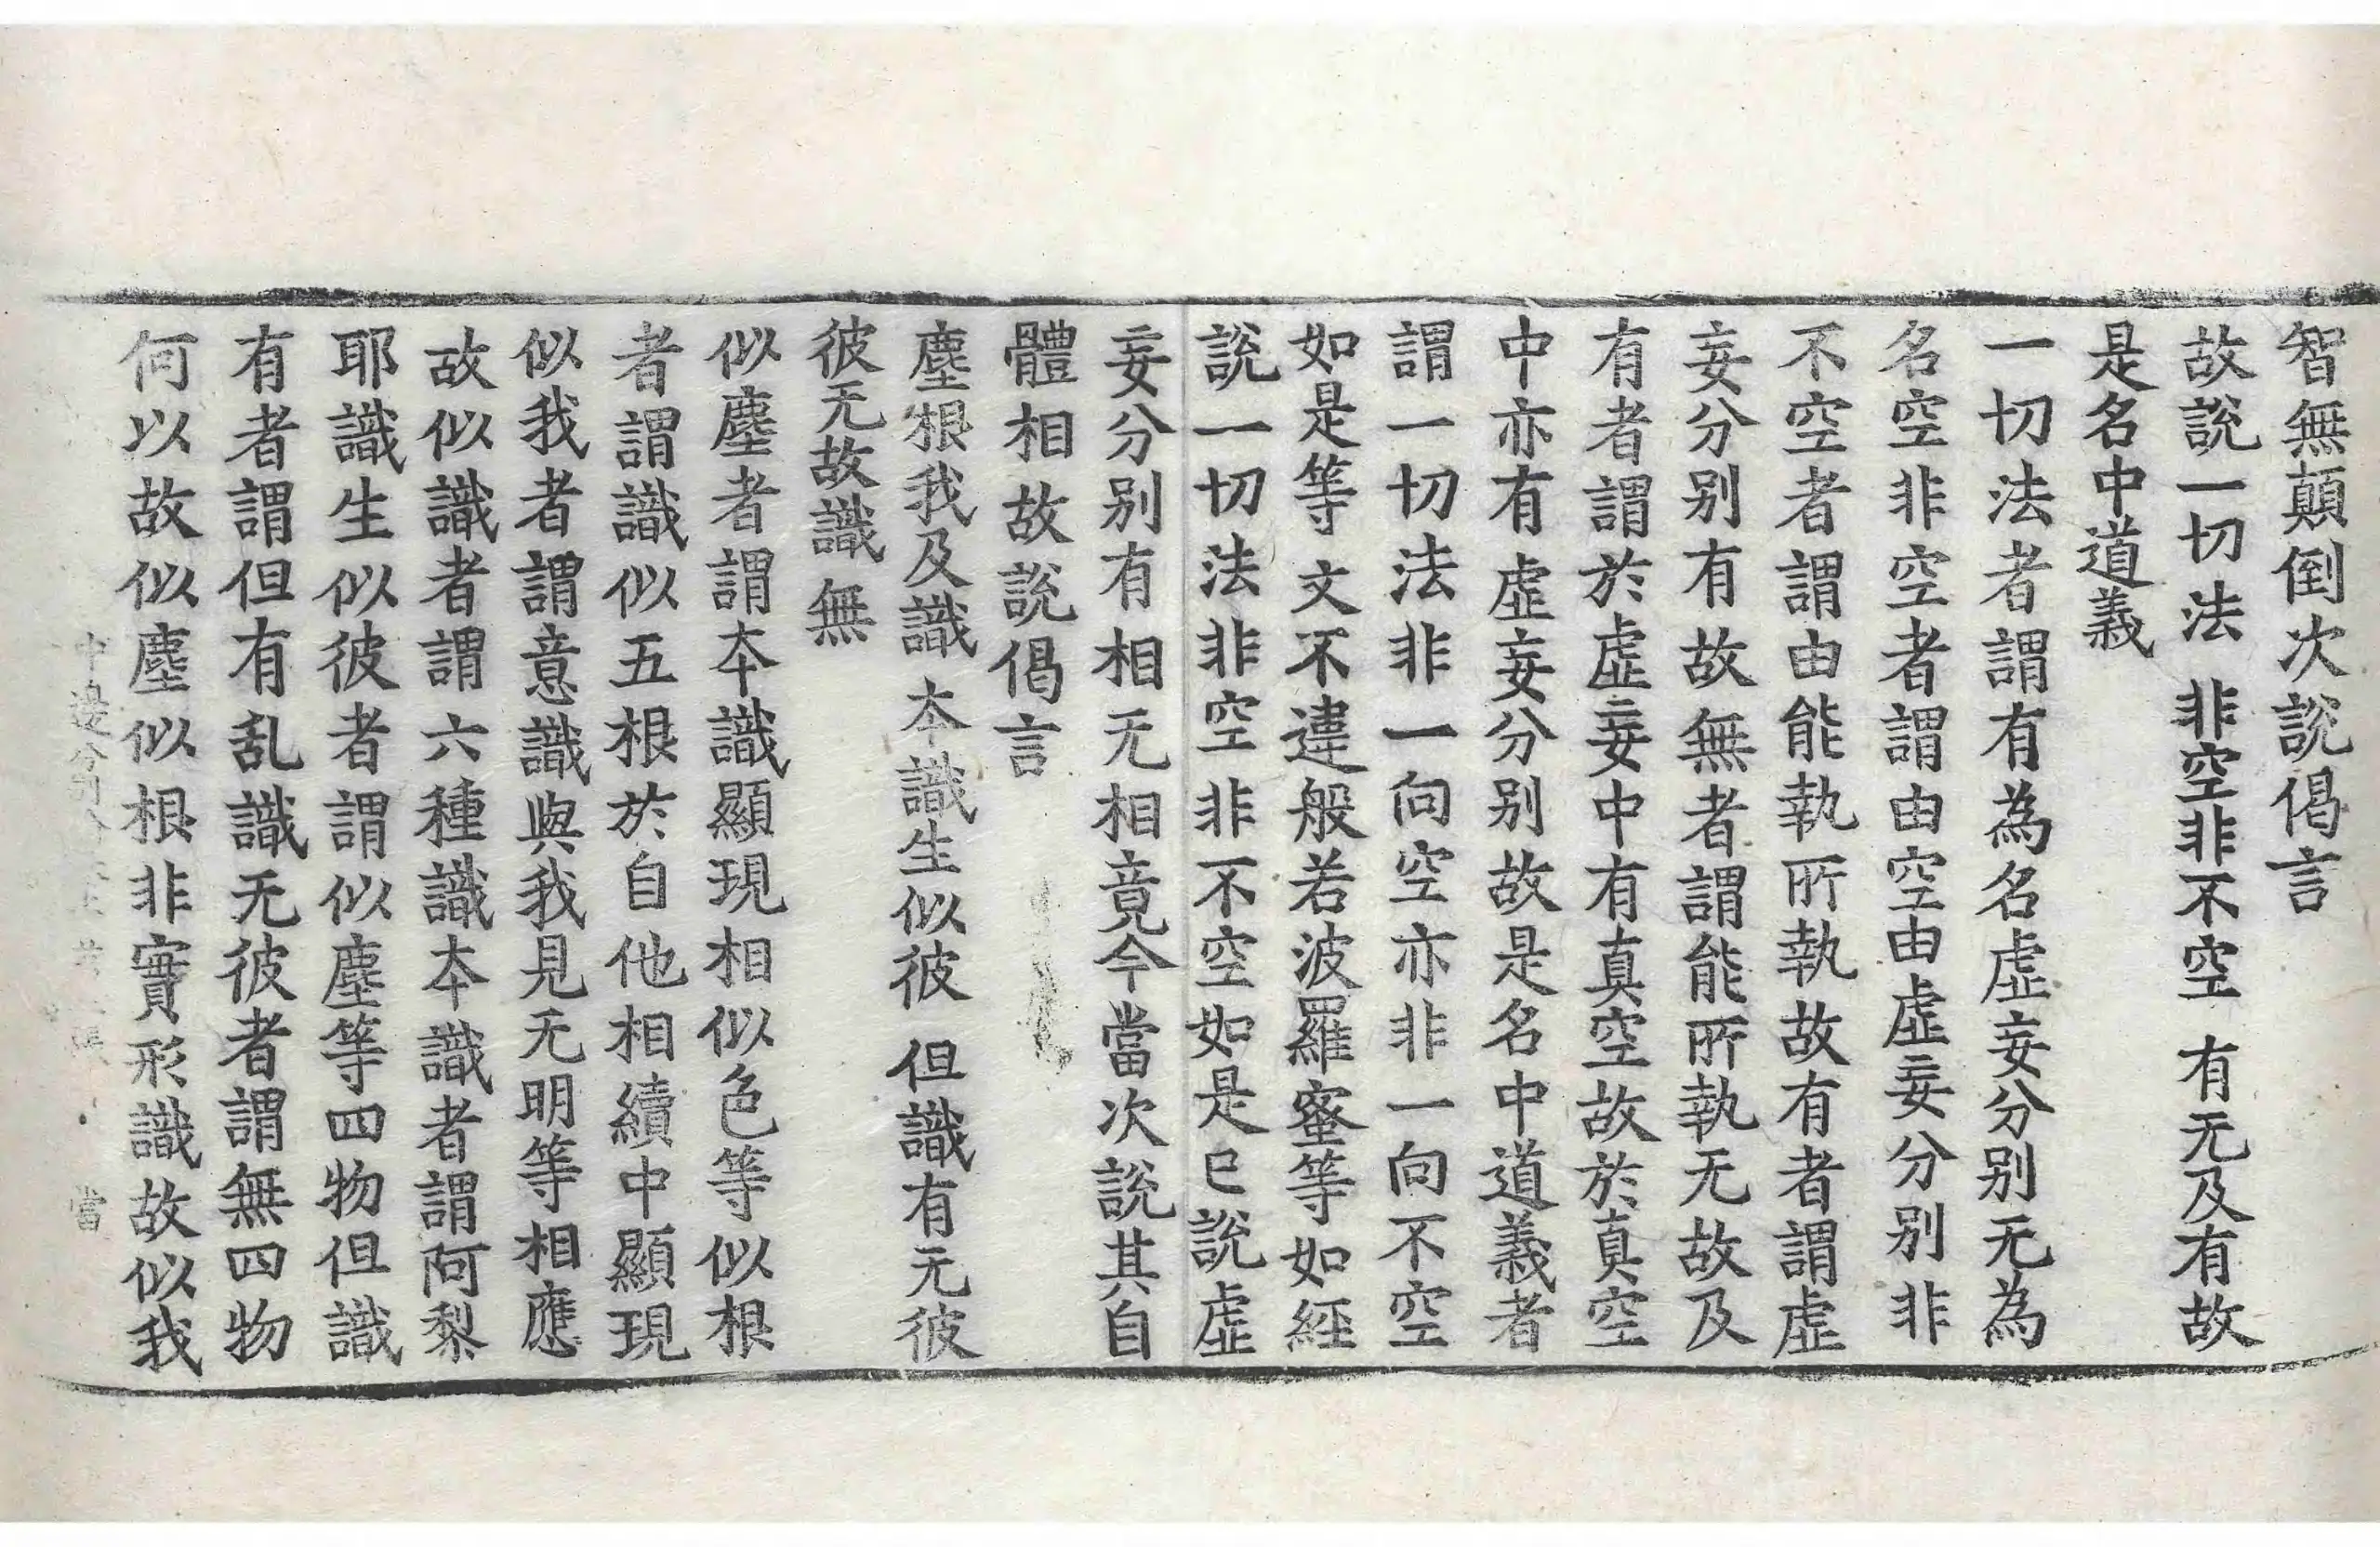 智無顛倒次說偈言
故說一切法　非空非不空　有无及有故
是名中道義
一切法者謂有為名虛妄分別无為
名空非空者謂由空由虛妄分別非
不空者謂由能執所執故有者謂虛
妄分別有故無者謂能所執无故及
有者謂於虛妄中有真空故於真空
中亦有虛妄分別故是名中道義者
謂一切法非一向空亦非一向不空
如是等文不違般若波羅蜜等如經
說一切法非空非不空如是已說虛
妄分別有相无相竟今當次說其自
體相故說偈言
塵根我及識　本識生似彼　但識有无彼
彼无故識無
似塵者謂本識顯現相似色等似根
者謂識似五根於自他相續中顯現
似我者謂意識與我見无明等相應
故似識者謂六種識本識者謂阿黎
耶識生似彼者謂似塵等四物但識
有者謂但有乱識无彼者謂無四物
何以故似塵似根非實形識故似我
中邊分別
當